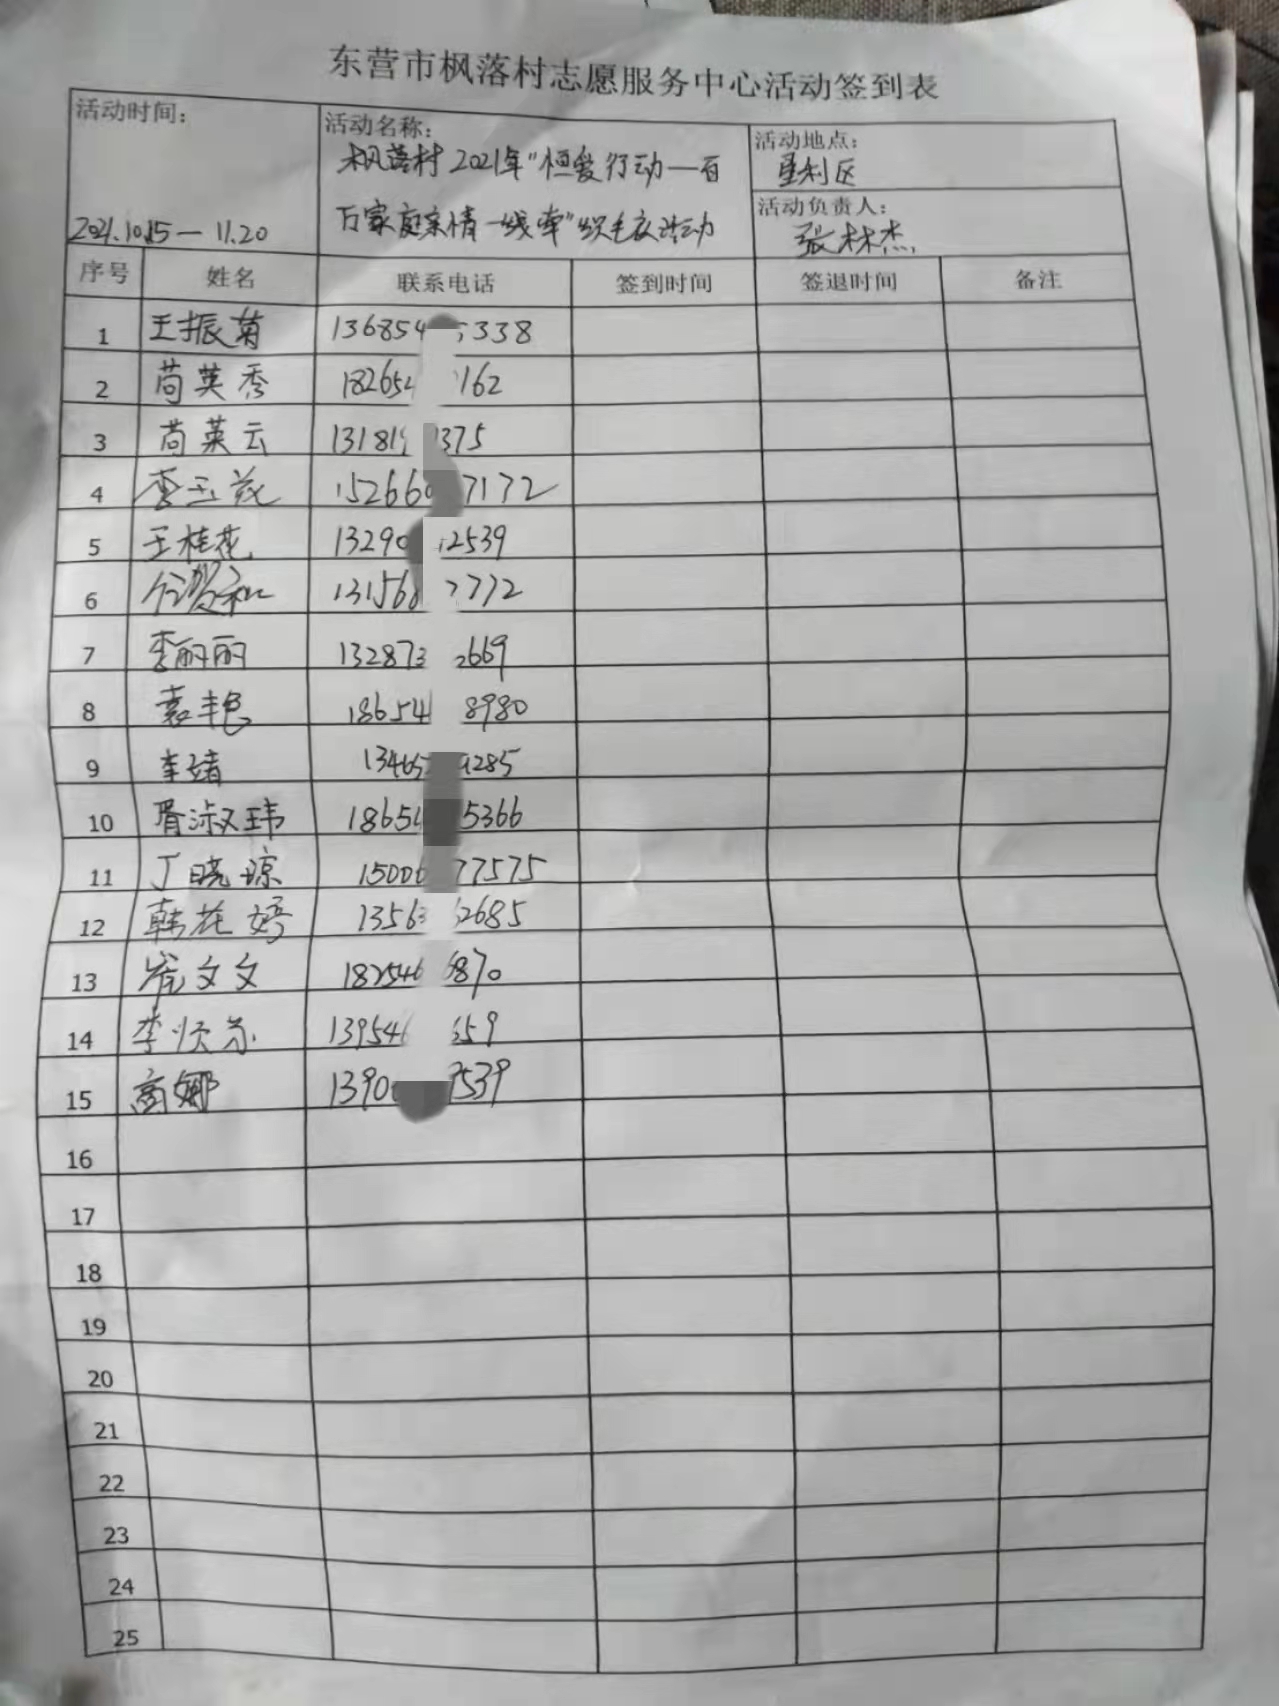 东营市枫落村志愿服务中心活动签到表
活动时间：
2021.10.15— 11.20
活动名称：
枫落村2021年“恒爱行动—百
万家庭亲情一线牵”织毛衣活动
活动地点：
垦利区
活动负责人：
张林杰
序号 姓名 联系电话 签到时间 签退时间 备注
1 王振菊 136854 5338
2 苘英秀 18265 162
3 苘英云 13181 375
4 李玉花 15266 7172
5 王桂花 1329 2539
6 13156 7772
7 李丽丽 13287 2669
8 袁丰艳 18654 8980
9 李靖 13465 9285
10 胥淑玮 18654 5366
11 丁晓琼 15006 77575
12 韩花婷 13563 2685
13 崔文文 182546 6870
14 李顺京 139546 659
15 商娜 1390 9539
16
17
18
19
20
21
22
23
24
25